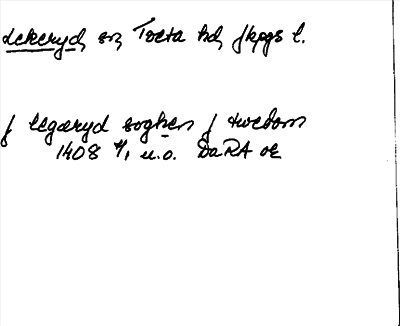 Lekeryd, sn, Tveta hd, Jkpgs l.
j legæryd soghen j twedom
1408 4/1 u.o. DaRA or